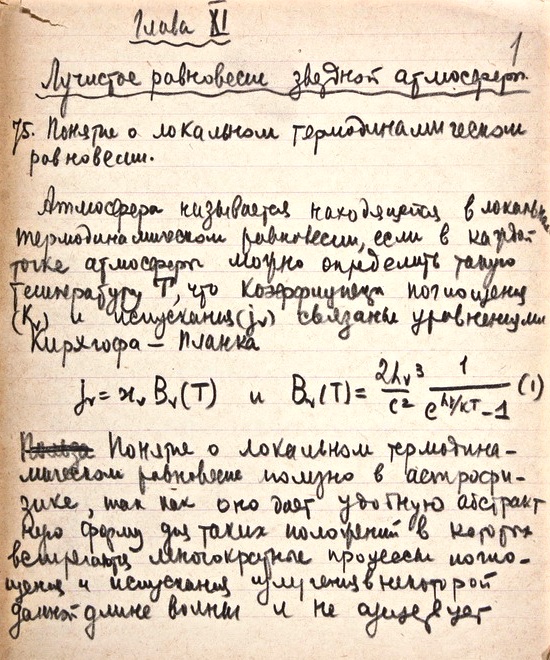 Глава XI
1
Лучистое равновесие звездной атмосферы.
75. Понятие о локальном термодинамическом
равновесии.
Атмосфера называется находящейся в локальном
термодинамическом равновесии, если в каждой
точке атмосферы можно определить такую
температуру T, что коэффициенты поглощения
(Kν) и испускания (jν) связаны уравнениями
Кирхгофа – Планка
jν = ϰν Bν(T) и Bν(T) = 2hν³/c² 1/(e^hν/kT – 1) (1)
Понятие о локальном термодина-
мическом равновесии полезно в астрофи-
зике, так как оно дает удобную абстракт
ную форму для таких положений в которых
встречаются многократные процессы погло-
щения и испускания излучения в некоторой
данной длине волны и не существует